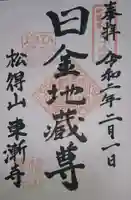 奉拝 令和二年二月一日
日金地蔵尊
松得山 東漸寺